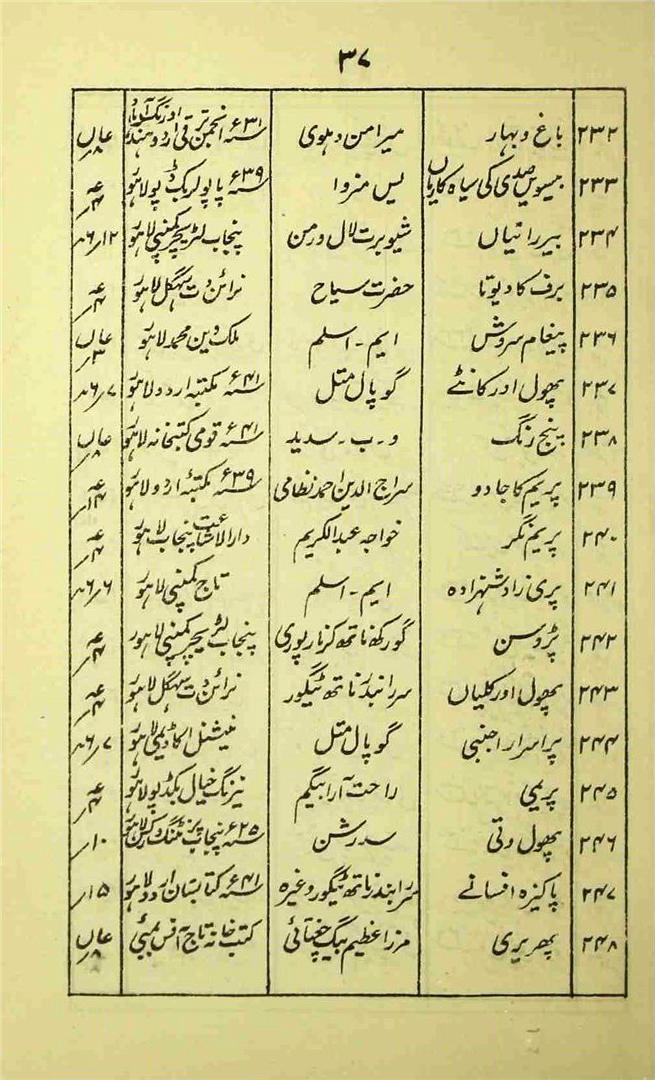 ۳۷
۲۳۲ باغ و بہار میر امن دہلوی ۳۱ء انجمن ترقی اردو ہند اورنگ آباد
۲۳۳ بیسویں صدی کی سیاہ کاریاں لیس منروا ۳۹ء پاپولر بکڈپو لاہور
۲۳۴ بیر رانیاں شیو برت لال ورمن پنجاب لٹریچر کمپنی لاہور
۲۳۵ برف کا دیوتا حضرت سیاح نرائن دت سہگل لاہور
۲۳۶ پیغام سروش ایم۔اسلم ملک دین محمد لاہور
۲۳۷ پھول اور کانٹے گوپال متل ۴۱ء مکتبہ اردو لاہور
۲۳۸ پنج رنگ و۔ب۔سدید ۴۱ء قومی کتبخانہ لاہور
۲۳۹ پریم کا جادو سراج الدین احمد نظامی ۳۹ء مکتبۂ اردو لاہور
۲۴۰ پریم نگر خواجہ عبدالکریم دارالاشاعت پنجاب لاہور
۲۴۱ پری زاد شہزادہ ایم۔اسلم تاج کمپنی لاہور
۲۴۲ پڑوسن گورکھ ناتھ پنجاب لٹریچر کمپنی لاہور
۲۴۳ پھول اور کلیاں سر رابندر ناتھ ٹیگور نرائن دت سہگل لاہور
۲۴۴ پراسرار اجنبی گوپال متل نیشنل اکاڈیمی لاہور
۲۴۵ پریمی راحت آرا بیگم نیرنگ خیال بکڈپو لاہور
۲۴۶ پھول وتی سدرشن ۲۵ء پنجاب پرنٹنگ ورکس لاہور ۱۰؍
۲۴۷ پاکیزہ افسانے سر رابندر ناتھ ٹیگور وغیرہ ۴۱ء کتابستان اردو لاہور ۱۵؍
۲۴۸ پھریری مرزا عظیم بیگ چغتائی کتب خانہ تاج آفس بمبئی